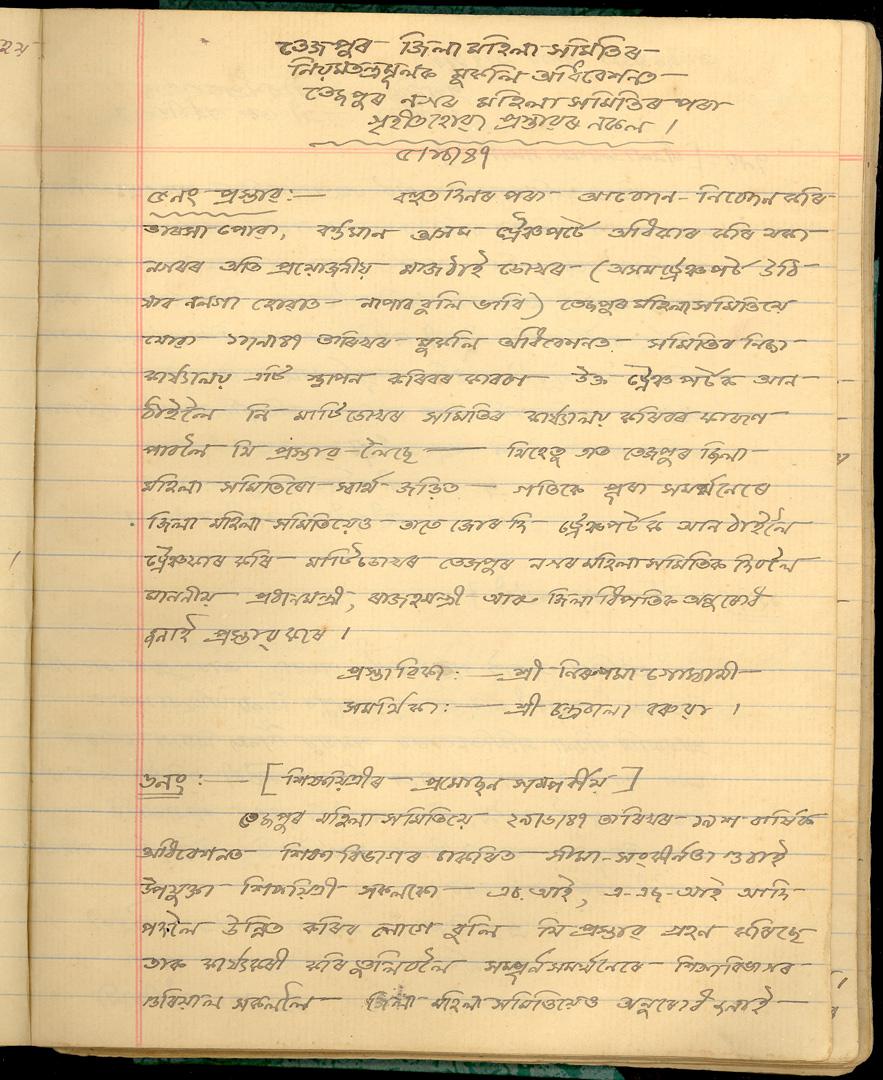 তেজপুৰ জিলা মহিলা সমিতিৰ
নিয়মতন্ত্ৰমূলক মুকলি অধিবেশনত
তেজপুৰ নগৰ মহিলা সমিতিৰ পৰা
গৃহীত হোৱা প্ৰস্তাৱৰ নকল ।
৫নং প্ৰস্তাৱ :— বহুত দিনৰ পৰা আবেদন-নিবেদন কৰি
ভাৰসা পোৱা, বৰ্ত্তমান অসম ট্ৰেন্সপৰ্টে অধিকাৰ কৰি থকা
নগৰৰ অতি প্ৰয়োজনীয় মাজ ঠাই ডোখৰ (অসম ট্ৰেন্সপৰ্ট উঠি
যাব নলগা হোৱাত নাপাব বুলি ভাবি) তেজপুৰ মহিলা সমিতিয়ে
যোৱা তাৰিখৰ মুকলি অধিবেশনত সমিতিৰ নিজা
কাৰ্য্যালয় এটি স্থাপন কৰিবৰ কাৰণে উক্ত ট্ৰেন্সপৰ্টক আন
ঠাইলৈ নি মাটি ডোখৰ সমিতিৰ কাৰ্য্যালয় কৰিবৰ কাৰণে
পাবলৈ যি প্ৰস্তাৱ লৈছে — যিহেতু এত তেজপুৰ জিলা
মহিলা সমিতিৰো স্বাৰ্থ জড়িত — গতিকে পূৰা সমৰ্থনেৰে
জিলা মহিলা সমিতিয়েও তাতে জোৰ দি ট্ৰেন্সপৰ্টক আন ঠাইলৈ
ট্ৰেন্সফাৰ কৰি মাটি ডোখৰ তেজপুৰ নগৰ মহিলা সমিতিক দিবলৈ
মাননীয় প্ৰধানমন্ত্ৰী, ৰাজহমন্ত্ৰী আৰু জিলাধিপতিক অনুৰোধ
জনাই প্ৰস্তাৱ কৰে ।
প্ৰস্তাৱিকা : — শ্ৰী নিৰুপমা গোস্বামী
সমৰ্থিকা : — শ্ৰী চন্দ্ৰবালা বৰুৱা ।
৬নং :— [ শিক্ষয়িত্ৰীৰ প্ৰমোছন সম্পৰ্কীয় ]
তেজপুৰ মহিলা সমিতিয়ে তাৰিখৰ ১৯শ বাৰ্ষিক
অধিবেশনত শিক্ষা বিভাগৰ চাকৰিত সীমা-সংকীৰ্ণতা গুচাই
উপযুক্তা শিক্ষয়িত্ৰী সকলকো — এচ. আই, এ-এচ-আই আদি
পদলৈ উন্নিত কৰিব লাগে বুলি যি প্ৰস্তাৱ গ্ৰহন কৰিছে
তাক কাৰ্য্যকৰী কৰি তুলিবলৈ সম্পূৰ্ন সমৰ্থনেৰে শিক্ষাবিভাগৰ
গুৰিয়াল সকললৈ জিলা মহিলা সমিতিয়েও অনুৰোধ জনাই —